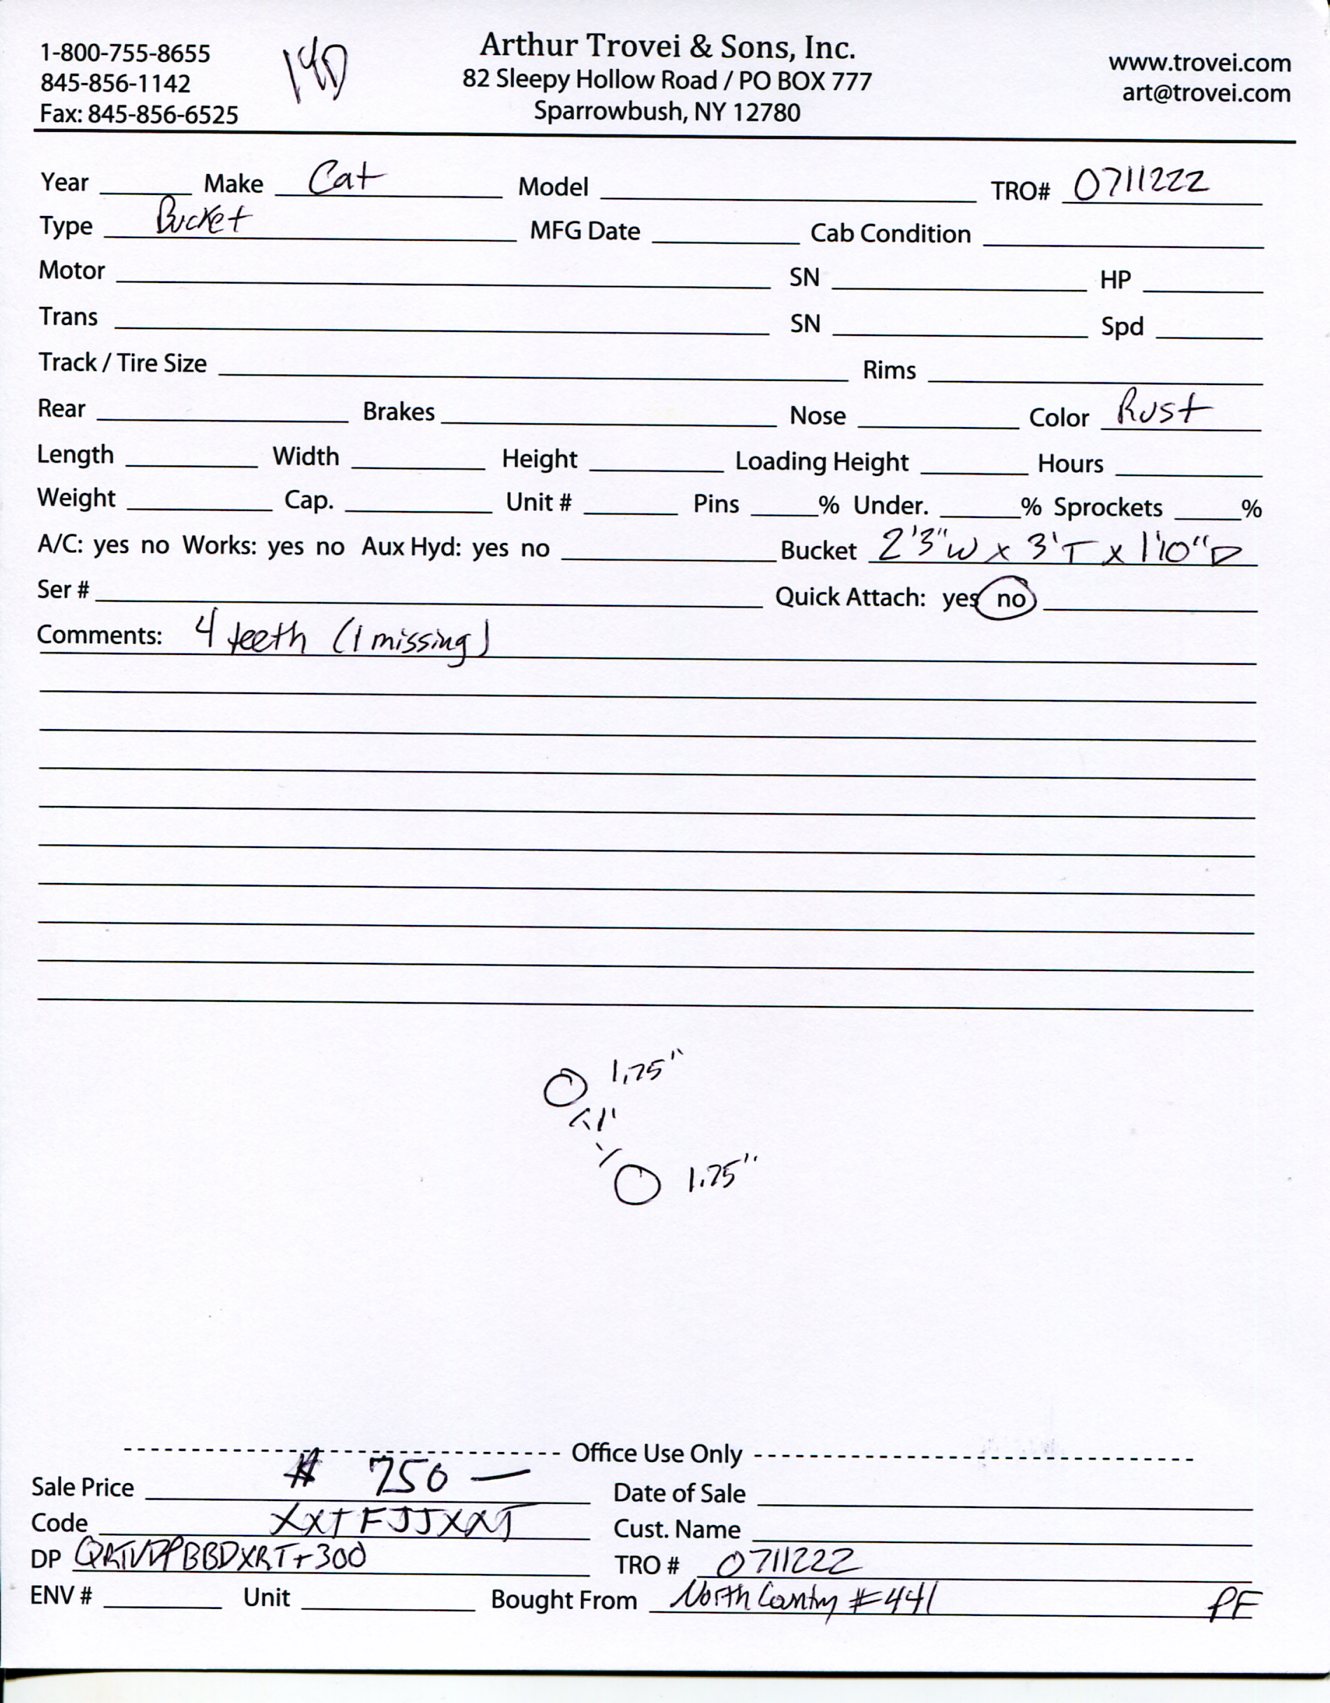 1-800-755-8655
845-856-1142
Fax: 845-856-6525
Arthur Trovei & Sons, Inc.
82 Sleepy Hollow Road / PO BOX 777
Sparrowbush, NY 12780
www.trovei.com
art@trovei.com
Year Make Cat Model TRO# 0711222
Type Bucket MFG Date Cab Condition
Motor SN HP
Trans SN Spd
Track / Tire Size Rims
Rear Brakes Nose Color Rust
Length Width Height Loading Height Hours
Weight Cap. Unit # Pins % Under. % Sprockets %
A/C: yes no Works: yes no Aux Hyd: yes no Bucket 2'3"W x 3'T x 1'10"D
Ser # Quick Attach: yes no
Comments: 4 teeth (1 missing)
1.75"
1'
1.75"
Office Use Only
Sale Price # 750 — Date of Sale
Code Cust. Name
DP TRO # 0711222
ENV # Unit Bought From North Country #441 PF